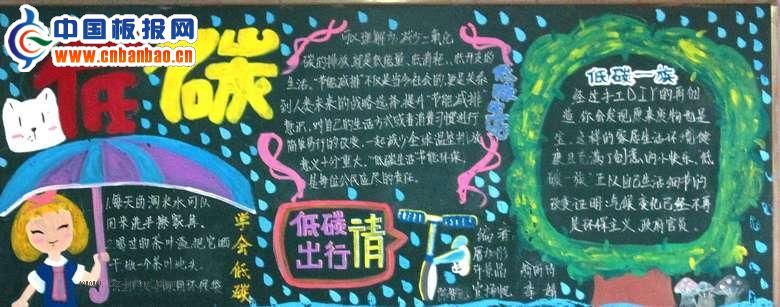 中国板报网
www.cnbanbao.cn
低碳
可以理解为:减少二氧化
碳的排放,就是低能量、低消耗、低开支的
生活。"节能减排"不仅是当今社会的,更是关系
到人类未来的战略选择,提升"节能减排"
意识,对自己的生活方式或者消费习惯进行
简单易行的改变,一起减少全球温室气体
意义十分重大。"低碳生活"节能环保,
是每位公民应尽的责任。
低碳生活
1.每天的淘米水可以
用来洗手擦家具。
2.喝过的茶叶渣,把它晒
干,做一个茶叶枕头
学会低碳
低碳
出行
请
编者
低碳一族
经过手工DIY的再创
造,你会发现原来废物也是
宝,这样的家居生活环境健
康且充满了创意的小快乐。低
碳一族"正以自己生活细节的
改变证明:气候变化已经不再
是环保主义、政府官员